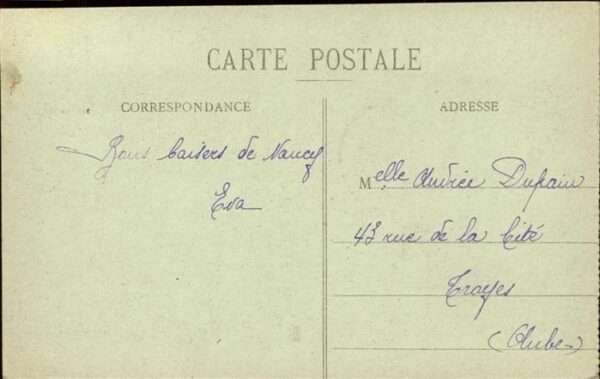 CARTE POSTALE
CORRESPONDANCE
ADRESSE
Bons baisers de Nancy
Eva
Melle Dupain
43 rue de la Cité
Troyes
(Aube)